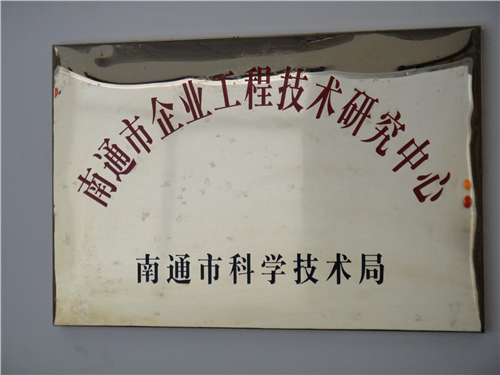 南通市企业工程技术研究中心
南通市科学技术局